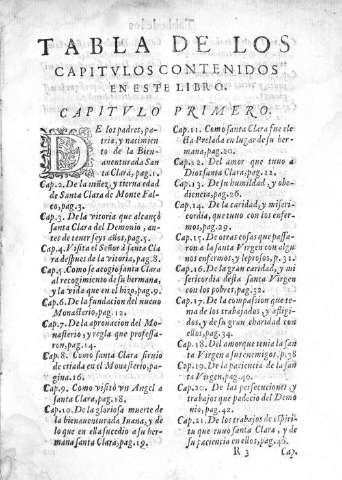 TABLA DE LOS
CAPITVLOS CONTENIDOS
EN ESTE LIBRO.
CAPITVLO PRIMERO.
DE los padres, pa-
tria, y nacimien
to de la Bien-
auenturada San
ta Clara, pag.1.
Cap.2. De la niñez, y tierna edad
de Santa Clara de Monte Fal-
co, pag.3.
Cap.3. De la vitoria que alcançò
santa Clara del Demonio, an-
tes de tener seys años, pag.5.
Cap.4. Visita el Señor à santa Cla
ra despues de la vitoria, pag.8.
Cap.5. Como se acogio santa Clara
al recogimiento de su hermana,
y la vida que en el hizo, pag.9.
Cap.6. De la fundacion del nueuo
Monasterio, pag.12.
Cap.7. De la aprouacion del Mo-
nasterio, y regla que professa-
ron, pag.14.
Cap.8. Como santa Clara siruio
de criada en el Monasterio, pa-
gina.16.
Cap.9. Como visitò vn Angel a
santa Clara, pag.18.
Cap.10. De la gloriosa muerte de
la bienauenturada Iuana, y de
lo que en ella sucedio a su her-
mana santa Clara, pag.19.
Cap.11. Como santa Clara fue ele
cta Prelada en lugar de su her-
mana, pag.20.
Cap.12. Del amor que tuuo à
Dios santa Clara, pag.22.
Cap.13. De su humildad, y obe-
diencia, pag.26.
Cap.14. De la caridad, y miseri-
cordia, que tuuo con los enfer-
mos, pag.29.
Cap.15. De otras cosas que passa-
ron a la santa Virgen con algu
nos enfermos, y leprosos, p.31.
Cap.16. De la gran caridad, y mi
sericordia desta santa Virgen
con los pobres, pag.32.
Cap.17. De la compassion que te-
nia de los trabajados, y afligi-
dos, y de su gran charidad con
ellos, pag.34.
Cap.18. Del amor que tenia la san
ta Virgen a sus enemigos, p.38
Cap.19. De la paciencia de la san
ta Virgen, pag.40.
Cap.20. De las persecuciones, y
trabajos que padecio del Demo
nio, pag.42.
Cap.21. De los trabajos de espiri-
tu que tuuo santa Clara, y de
su paciencia en ellos, pag.46.
R 3 Cap.